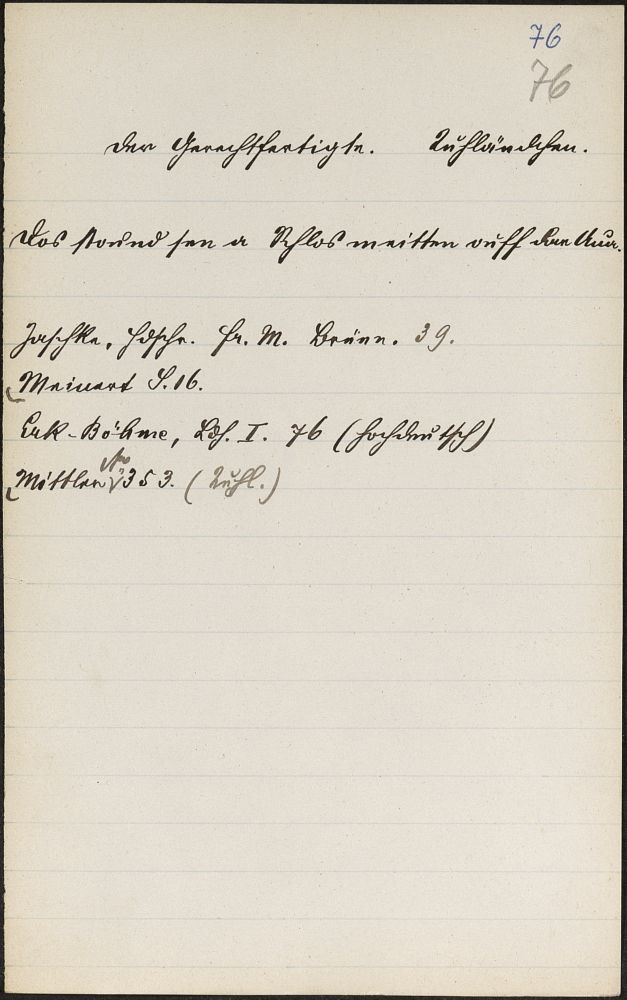 76
76
Der Gerechtfertigte. Kuhländchen.
Dos stound sen a Schlos meitten ouff dar Aua.
Jaschke, Hdschr. Fr. M. Brünn. 39.
Meinert S. 16.
Erk-Böhme, Ldh. I. 76 (hochdeutsch)
Mittler No 353. (Kuhl.)